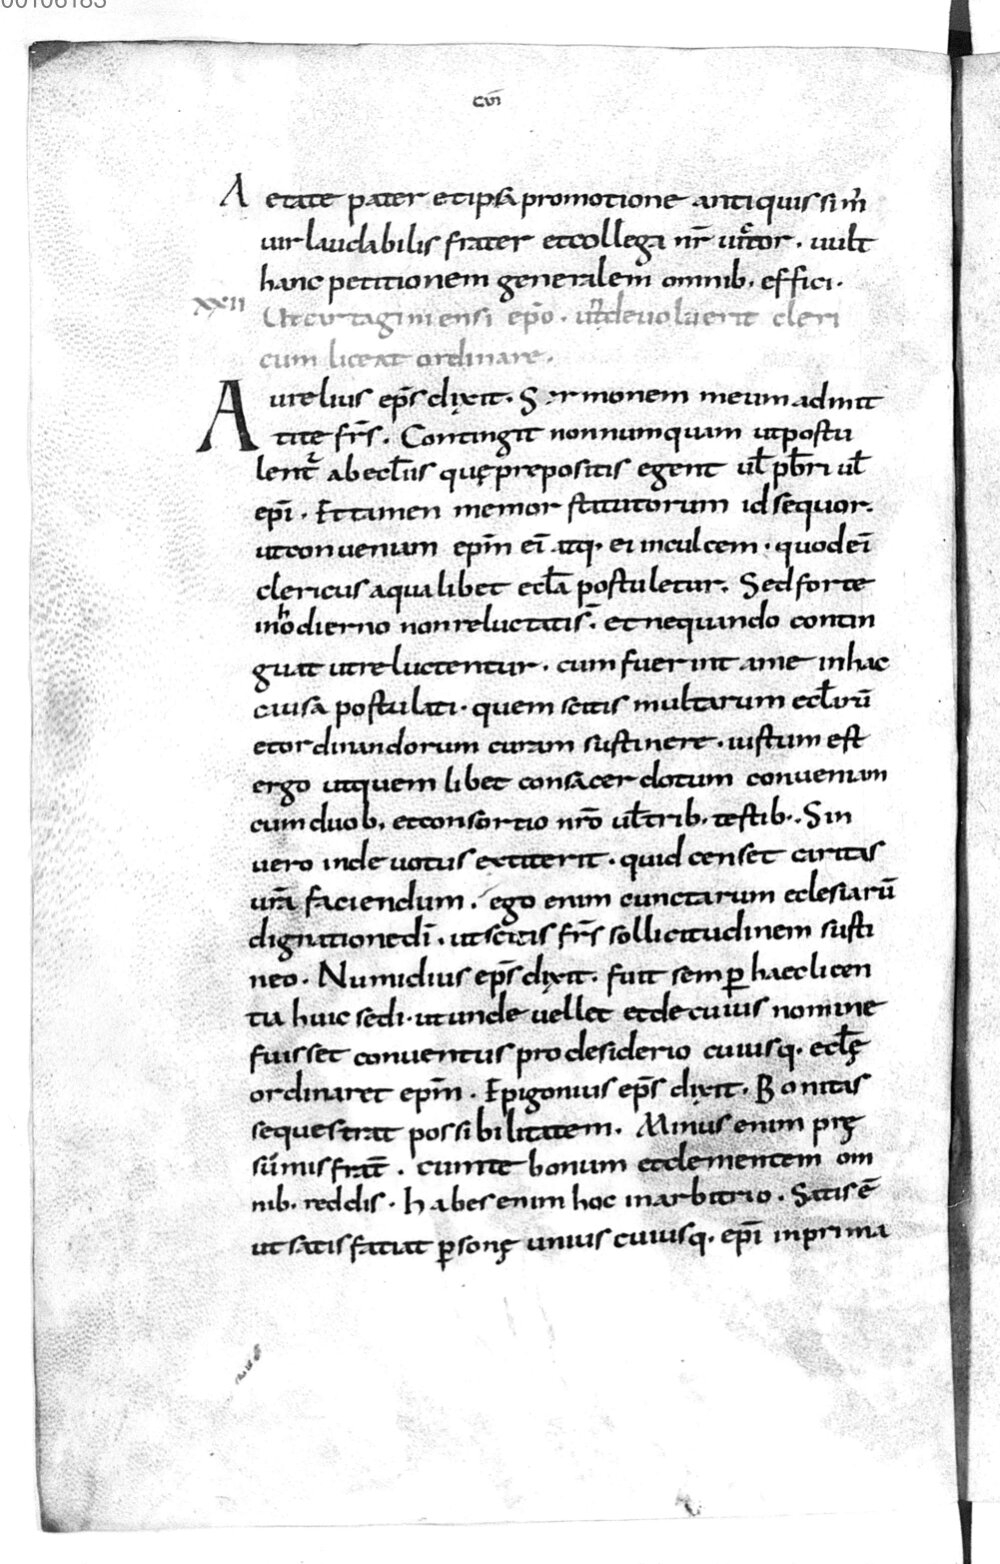 00106183
cvii
Aetate pater et ipsa promotione antiquissim̄
uir laudabilis frater et collega nr̄ uictor. uult
hanc petitionem generalem omnib. effici.
xxii Ut cartaginiensi ep̄o. und̄e uoluerit cleri
cum liceat ordinare.
Aurelius ep̄s dixit. Sermonem meum admit
tite fr̄s. Contingit nonnumquam ut postu
lent᷑ ab ecl̄iis quę prepositis egent ul̄ pb̄ri ul̄
ep̄i. Et tamen memor statutorum id sequor.
ut conueniam ep̄m ei᷒ atq. ei inculcem. quod ei᷒
clericus a qualibet ecl̄a postuletur. Sed forte
inhodierno non reluctatis. et ne quando contin
guat ut reluctentur. cum fuerint a me in hac
causa postulati. quem scitis multarum ecl̄arū
et ordinandorum curam sustinere. iustum est
ergo ut quemlibet consacerdotum conueniam
cum duob. et consortio nr̄o ul̄ trib. testib. Sin
uero indeuotus extiterit. quid censet caritas
ur̄a faciendum. ego enim cunctarum eclesiarū
dignatione dī. ut scitis fr̄s sollicitudinem susti
neo. Numidius ep̄s dixit. fuit semꝑ haec licen
tia huic sedi. ut unde uellet et de cuius nomine
fuisset conuentus pro desiderio cuiusq. ecl̄ę
ordinaret ep̄m. Epigonius ep̄s dixit. Bonitas
sequestrat possibilitatem. Minus enim prę
sūmis frat̄. cum te bonum et clementem om
nib. reddis. habes enim hoc in arbitrio. Satis ē
ut satisfaciat ꝑsonę unius cuiusq. ep̄i in prima